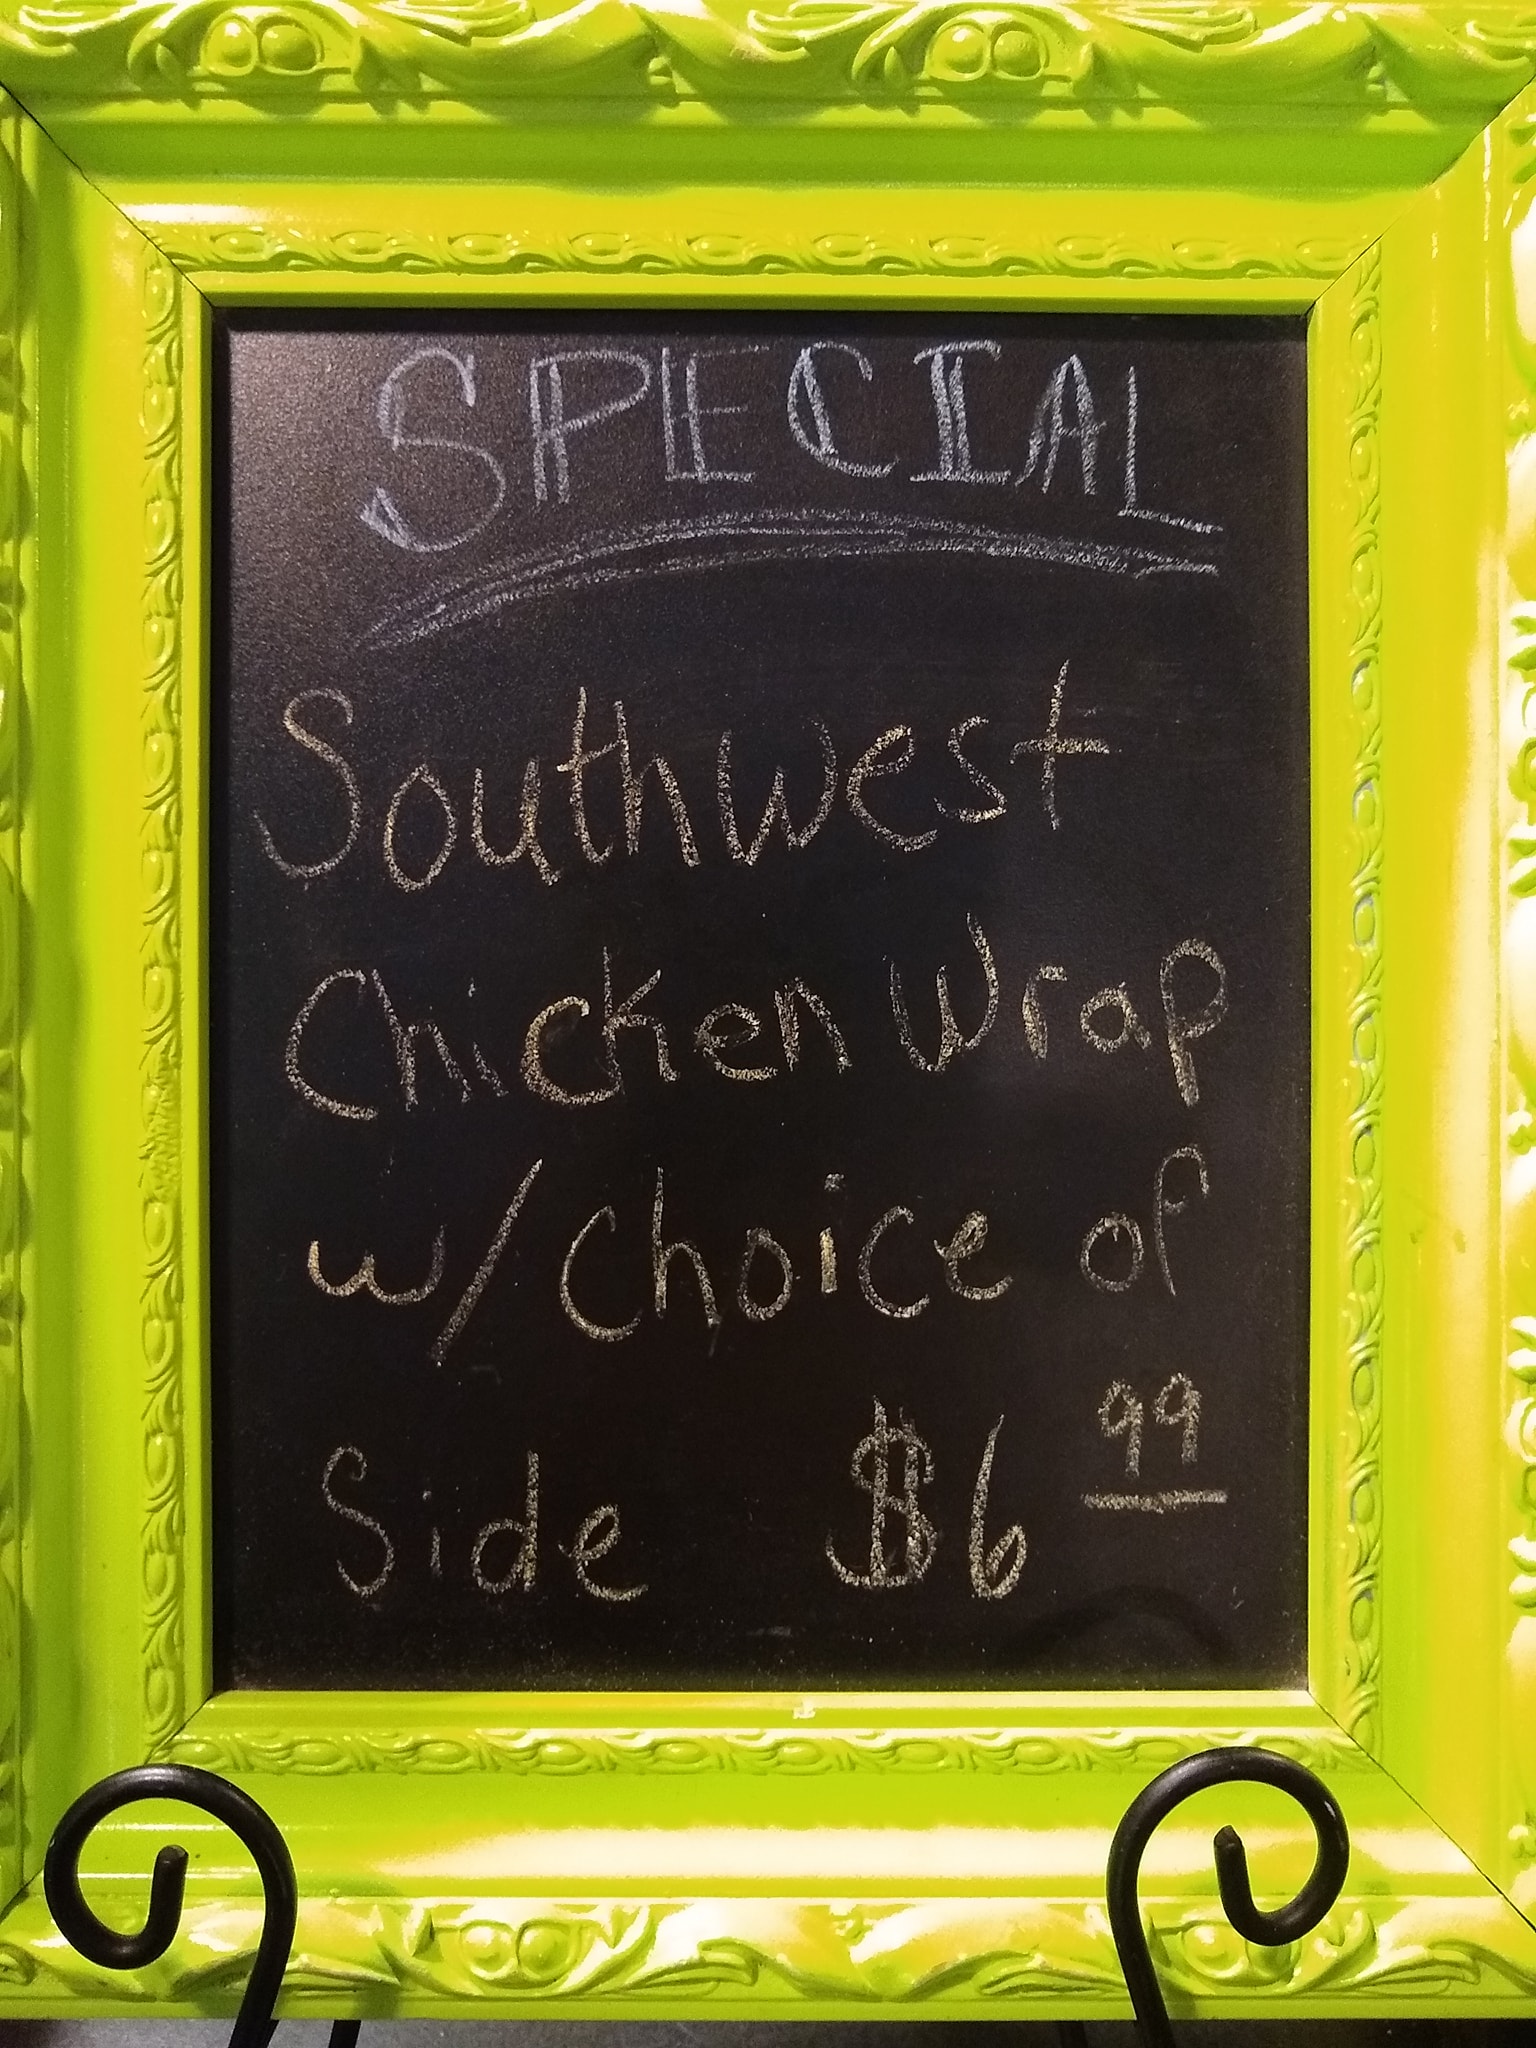 SPECIAL
Southwest
Chicken Wrap
w/choice of
Side $6 99